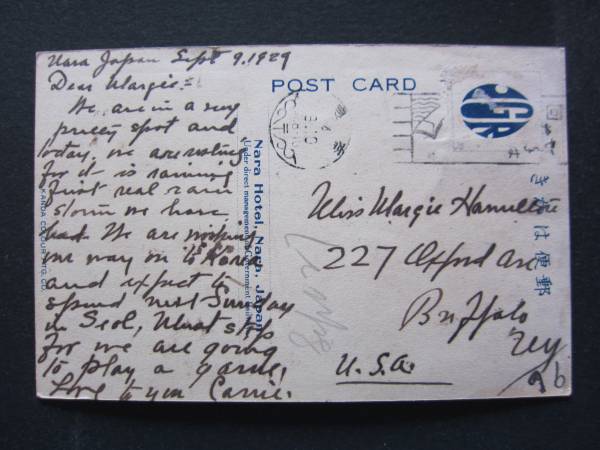 Nara Japan Sept 9. 1929
Dear Margie:-
We are in a very
pretty spot and
today we are
for it is raining
first real rain
storm we have
had We are
our way on to
and expect to
spend next Sunday
in Seol, Next stop
for we are going
to play a game,
Love to you Carrie.
POST CARD
Nara Hotel, Nara, Japan
Under direct management of Government
KANDA
JGR
Miss Margie Hamilton
227 Oxford Ave
Buffalo
N.Y
U.S.A.
郵便はがき